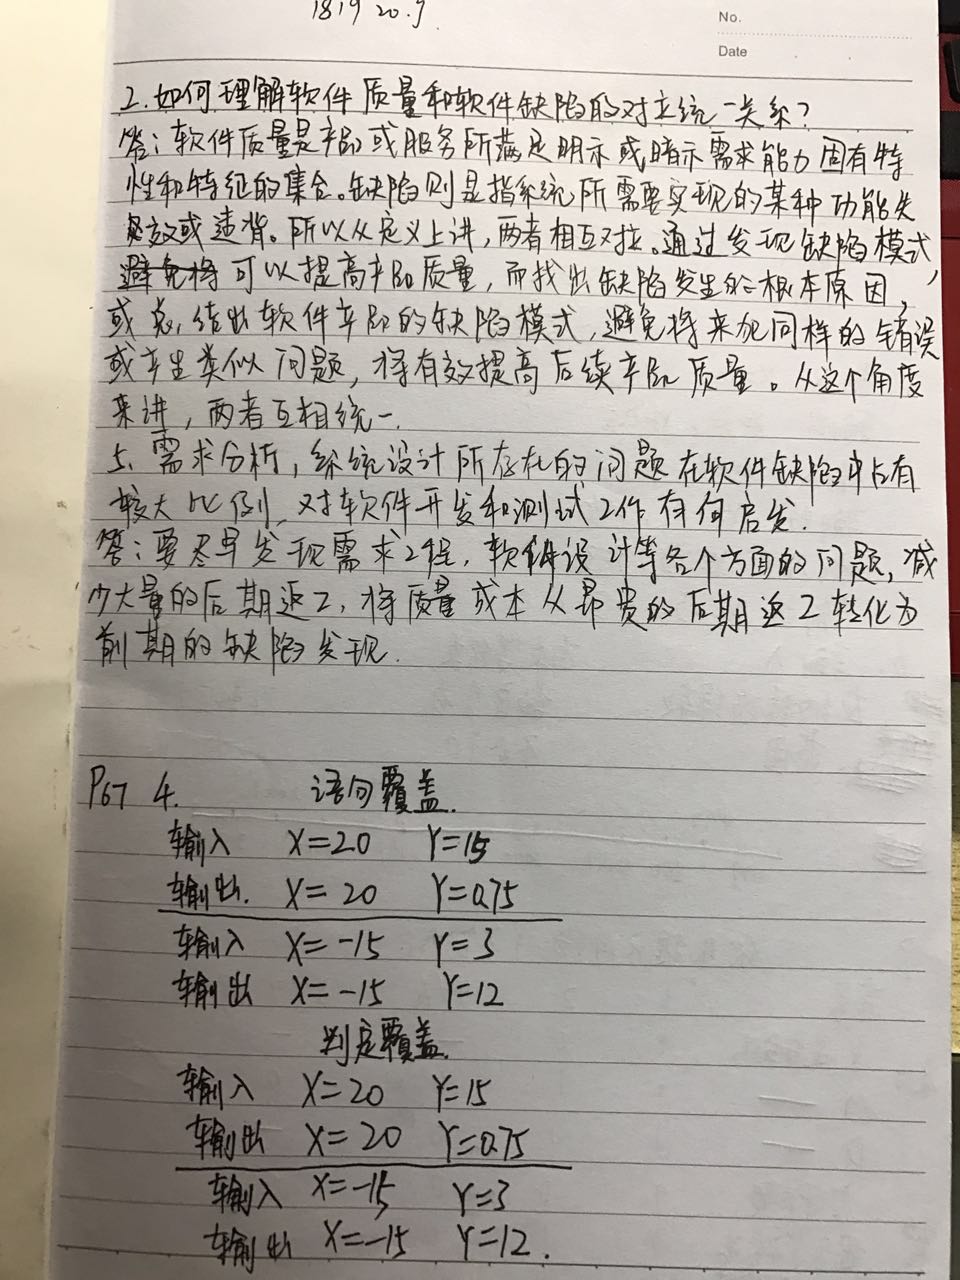 1819 20.9
No.
Date
2.如何理解软件质量和软件缺陷的对立统一关系?
答:软件质量是产品或服务所满足明示或暗示需求能力固有特
性和特征的集合。缺陷则是指系统所需要实现的某种功能失
效或违背。所以从定义上讲,两者相互对立。通过发现缺陷模式,
可以提高产品质量,而找出缺陷发生的根本原因,
或总结出软件产品的缺陷模式,避免将来犯同样的错误
或产生类似问题,将有效提高后续产品质量。从这个角度
来讲,两者互相统一.
5.需求分析,系统设计所存在的问题在软件缺陷中占有
较大比例,对软件开发和测试工作有何启发.
答:要尽早发现需求工程,软件设计等各个方面的问题,减
少大量的后期返工,将质量成本从昂贵的后期返工转化为
前期的缺陷发现.
P67 4. 语句覆盖.
输入 X=20 Y=15
输出. X=20 Y=0.75
输入 X=-15 Y=3
输出 X=-15 Y=12
判定覆盖.
输入 X=20 Y=15
输出 X=20 Y=0.75
输入 X=-15 Y=3
输出 X=-15 Y=12.